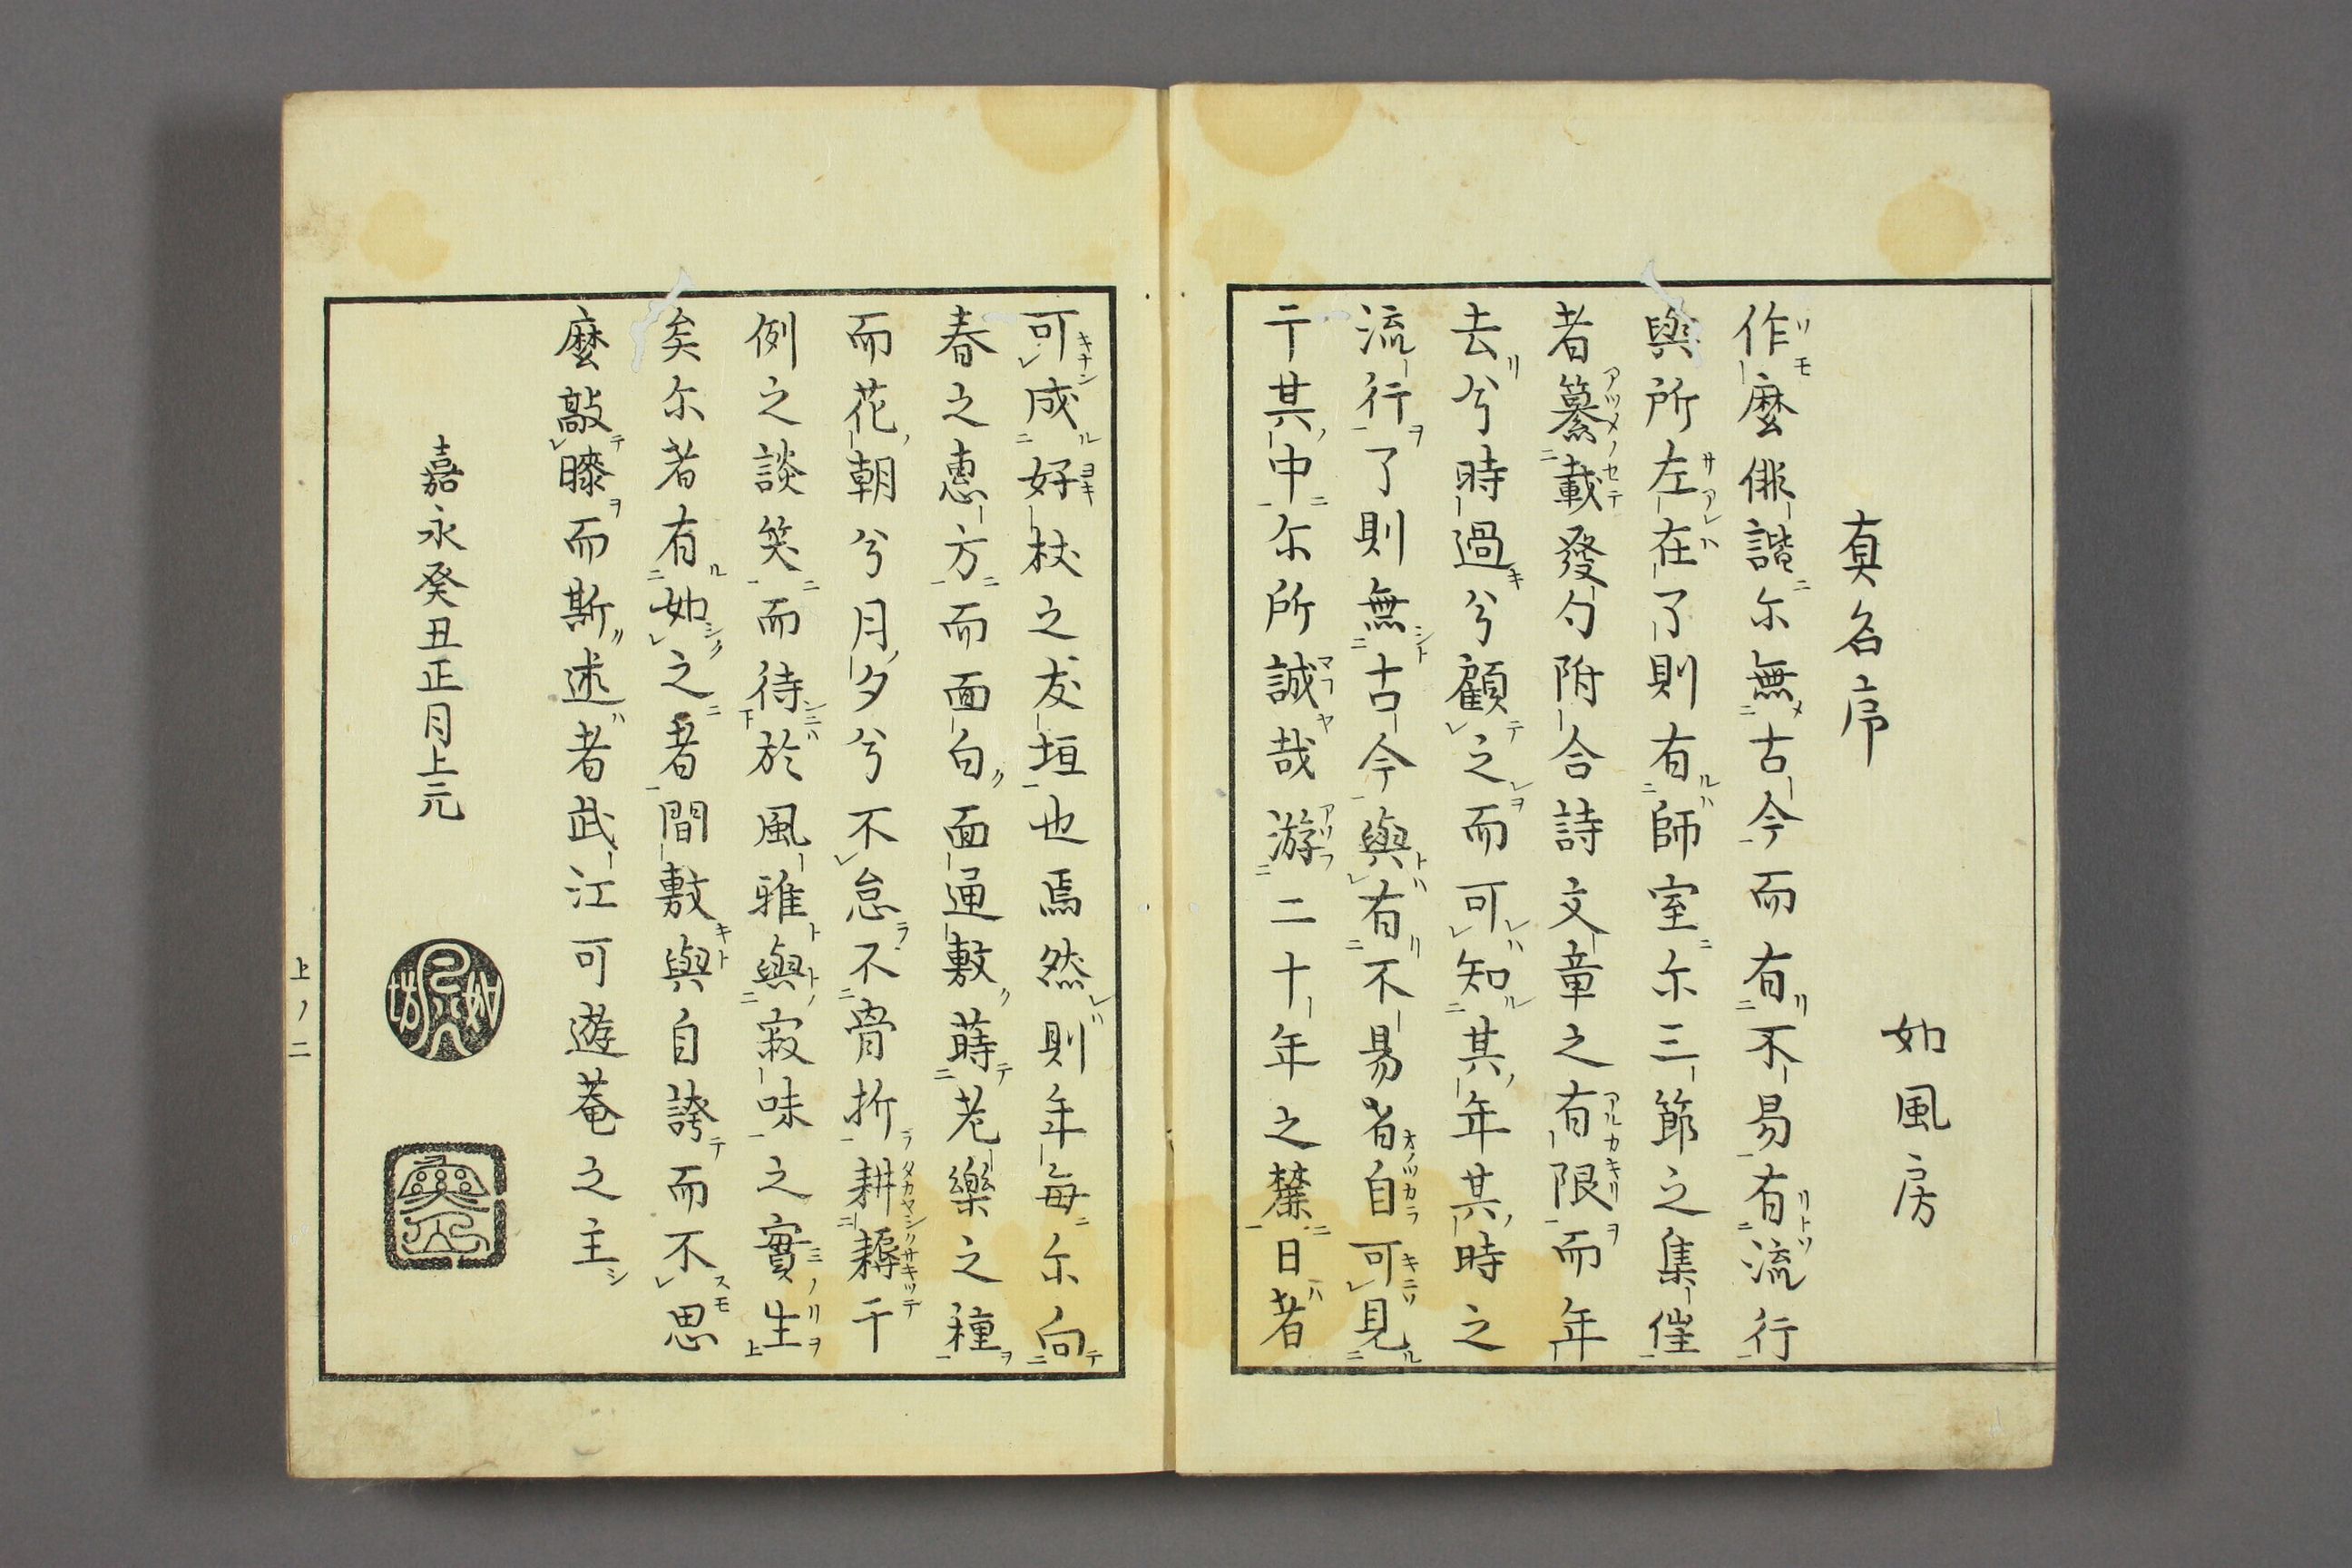 真名序
如風房
作麼俳諧尓無古今而有不易有流行
與所左在了則有師室尓三節之集催
者纂載發句附合詩文章之有限而年
去兮時過兮顧之而可知其年其時之
流行了則無古今與有不易者自可見
于其中尓所誠哉游二十年之櫱日者
可成好杖之友垣也焉然則年每尓向
春之惠方而面白面通敷蒔老樂之種
而花朝兮月夕兮不怠不骨折耕耨于
例之談笑而待於風雅與寂味之實生
矣尓者有如之者間敷與自誇而不思
麼敲膝而斯述者武江可遊菴之主
嘉永癸丑正月上元
上ノ二